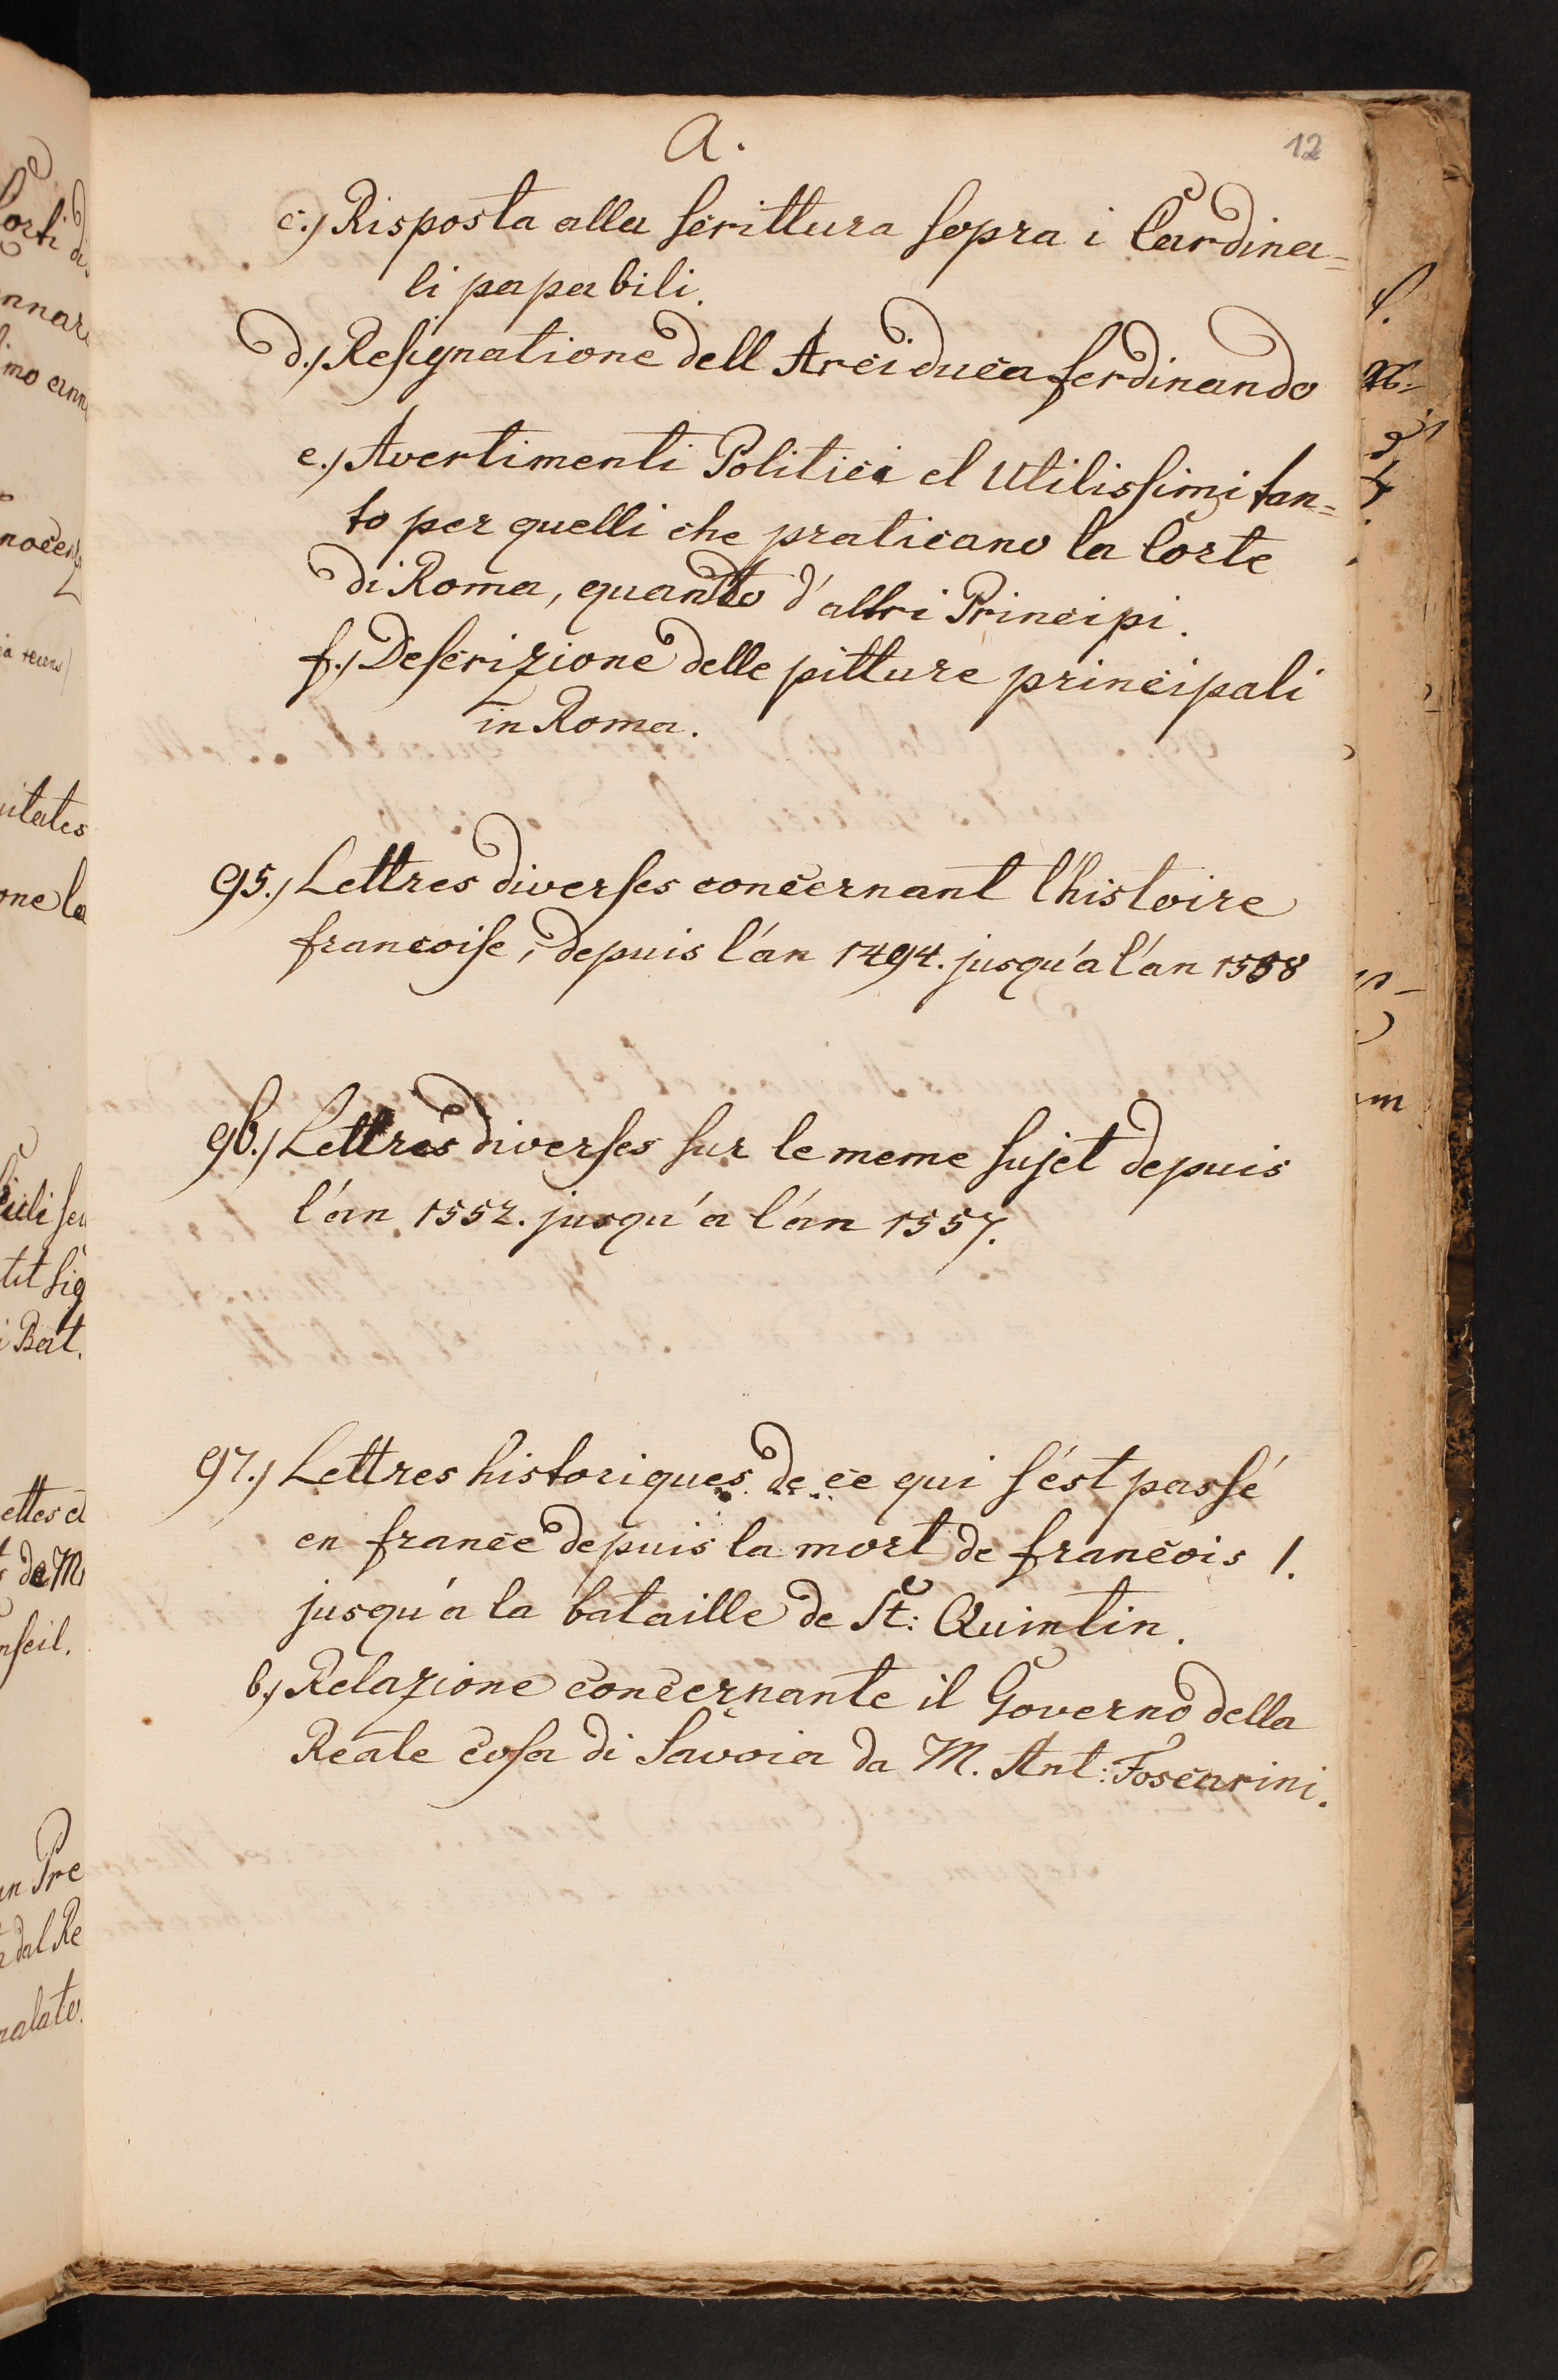 A.
12
c.) Risposta alla scrittura sopra i Cardina=
li papabili.
d.) Resignatione dell Arciduca ferdinando
e.) Avertimenti Politici et Utilissimi tan=
to per quelli che praticano la Corte
di Roma, quanto d'altri Principi.
f.) Descrizione delle pitture principali
in Roma.
95.) Lettres diverses concernant l'histoire
francoise, depuis l'án 1494. jusqu'a l'án 1558
96.) Lettres diverses sur le meme sujet depuis
l'án 1552. jusqu'a l'án 1557.
97.) Lettres historiques de ce qui s'ést passé
en france depuis la mort de francois 1.
jusqu'a la bataille de St: Quintin.
b.) Relazione concernante il Governo della
Reale casa di Savoia da M. Ant: Foscarini.